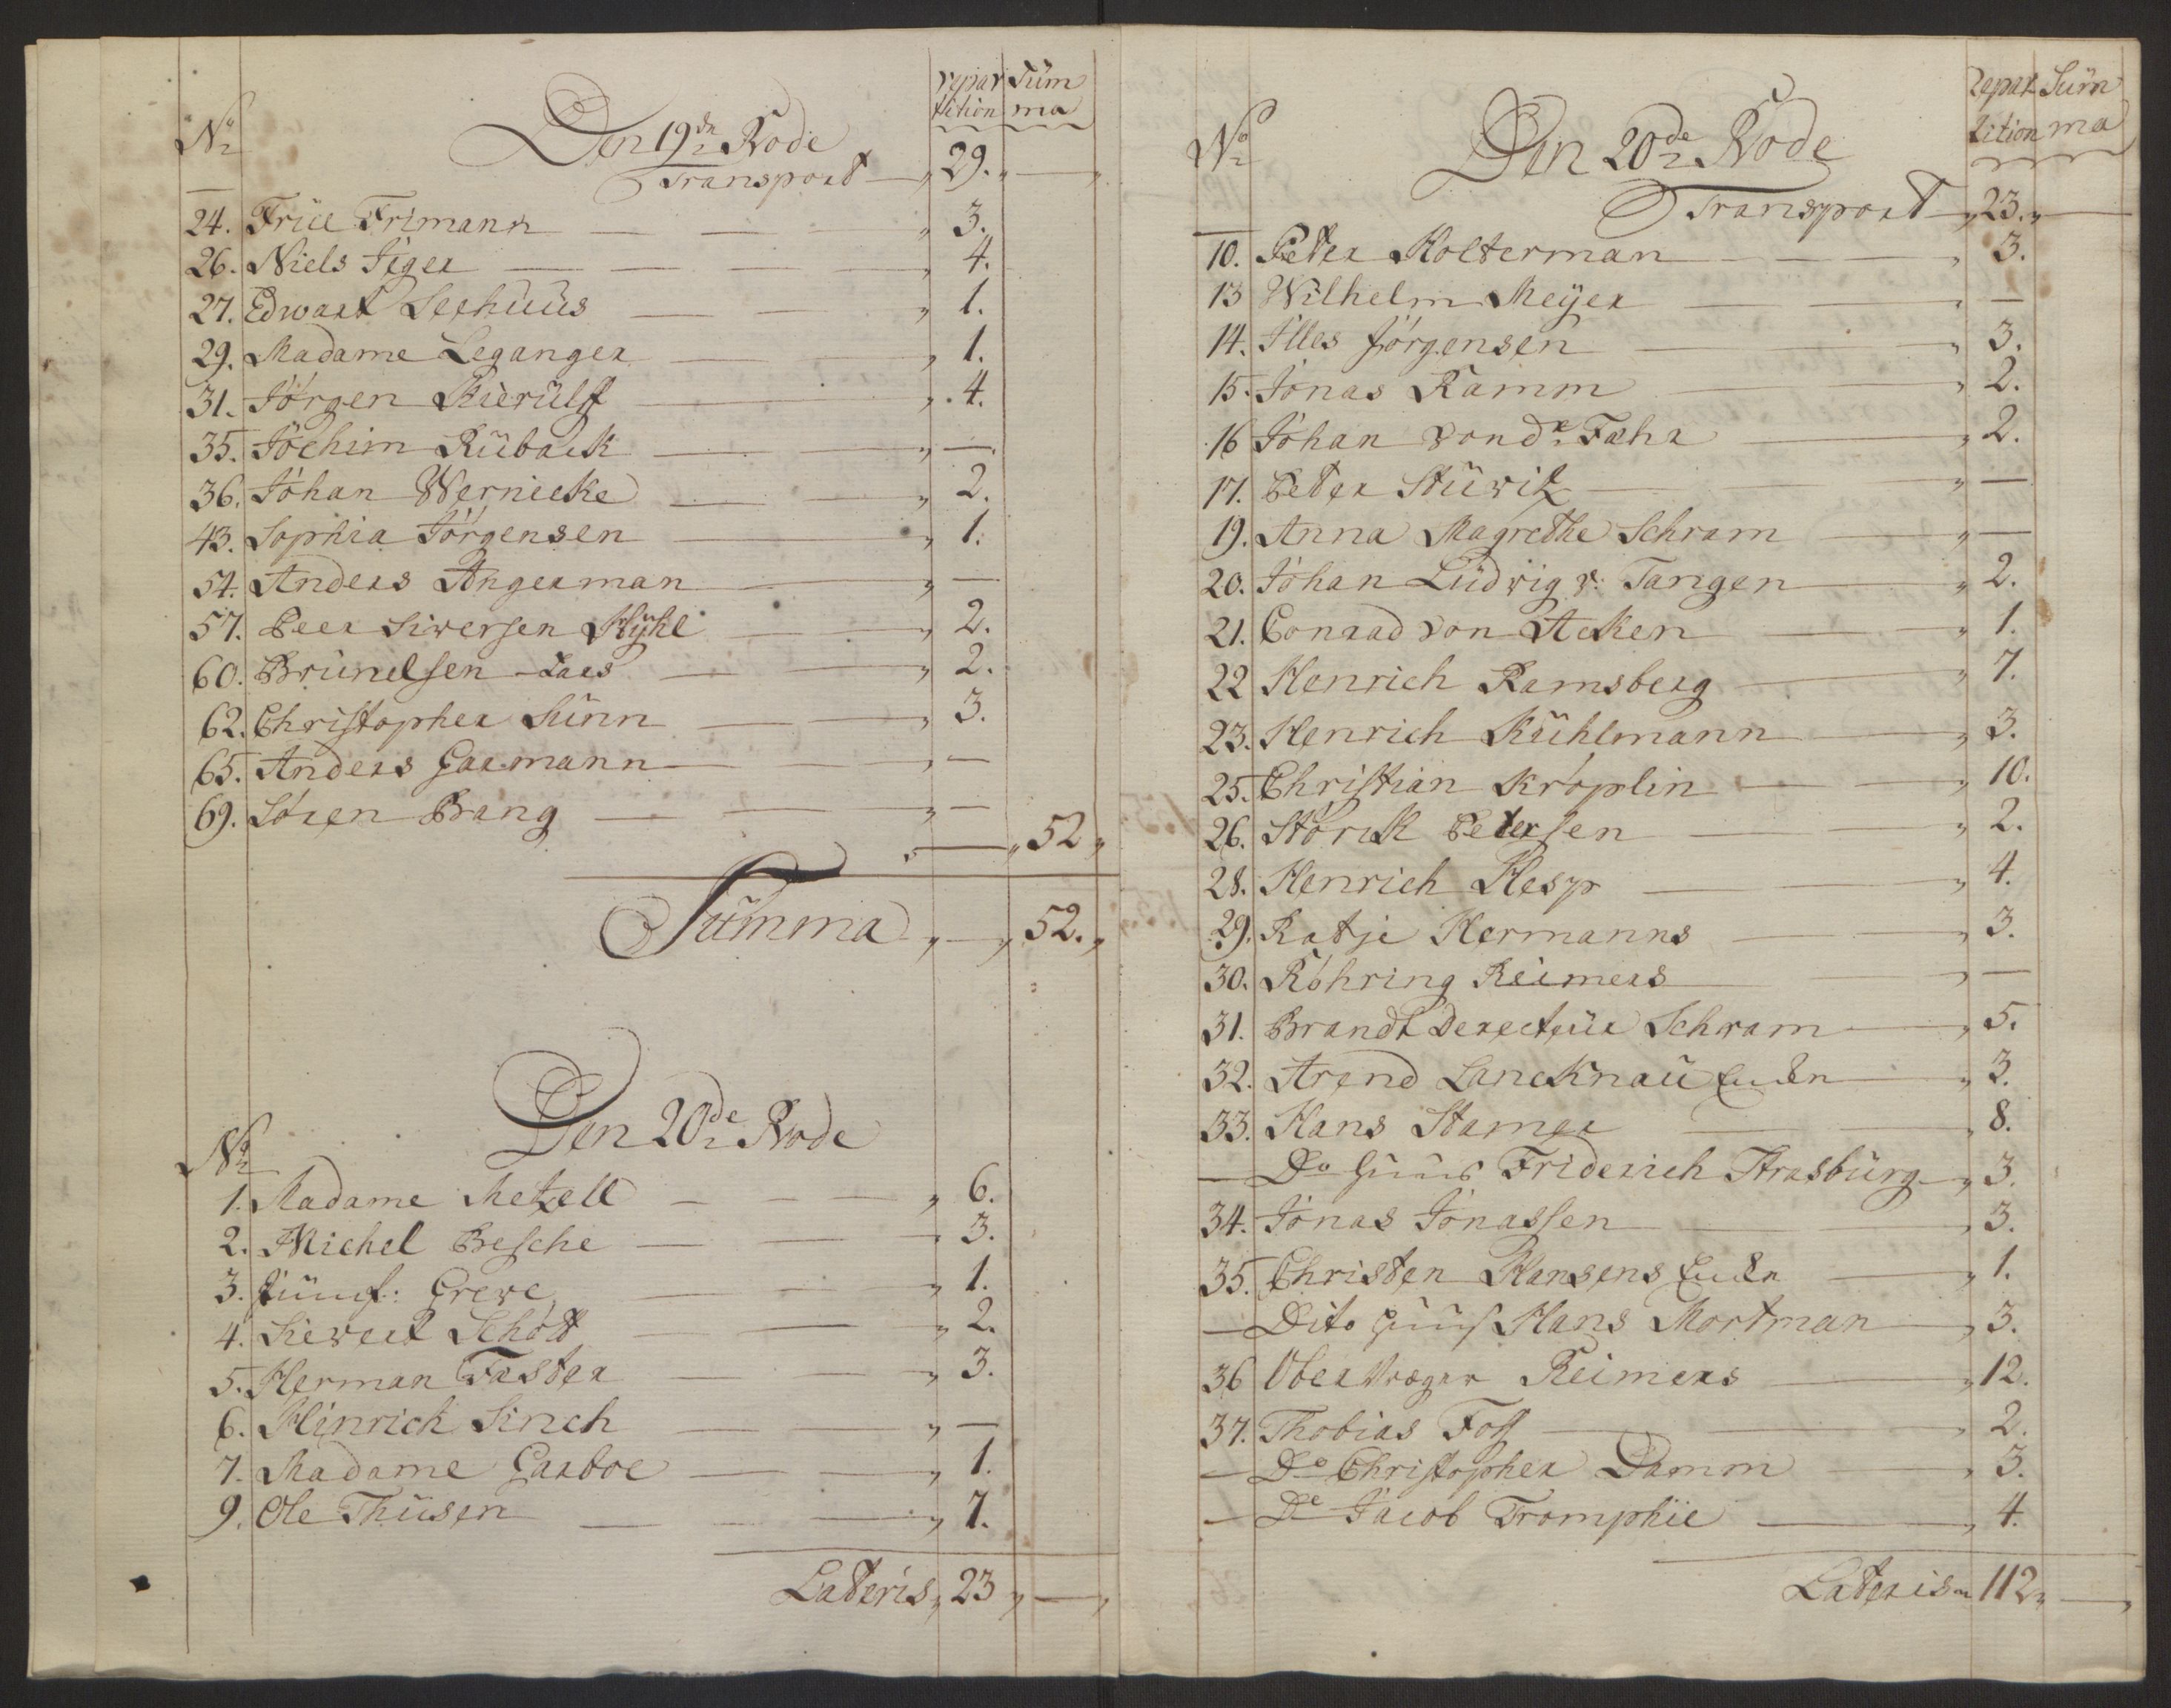 No Den 19de Rode repar Sum
tition ma
Transport 29.
24. Frill Frimann 3.
26. Niels Jeger 4.
27. Edwart Seehuus 1.
29. Madame Leganger 1.
31. Jörgen Kierulff 4.
35. Jochim Rüback —
36. Johan Wernicke 2.
43. Sophia Jörgensen 1.
54. Anders Angerman —
57. Peer Siversen Kyhl 2.
60. Brunelsen Lars 2.
62. Christopher Sunn 3.
65. Anders Garmann —
69. Sören Bang —
— 52
Summa — 52.
Den 20de Rode
No
1. Madame Metzell 6.
2. Michel Besche 3.
3. Jumf: Greve 1.
4. Siewert Schött 2.
5. Herman Faster 3.
6. Hinrich Sinch —
7. Madame Garboe 1.
9. Ole Thusen 7.
Lateris 23 —
No Den 20de Rode repar Sum
tition ma
Transport 23.
10. Peter Kolterman 3.
13 Wilhelm Meyer —
14. Illes Jörgensen 3.
15. Jonas Ramm 2.
16 Johan von dr Fæhr 2.
17. Peter Stuwitz —
19. Anna Magrethe Schram —
20. Johan Ludwig v: Tangen 2.
21. Conrad von Acken 1.
22 Henrich Ramsberg 7.
23. Henrich Kuhlmann 3.
25. Christian Kröplin 10.
26. Störck Petersen 2.
28. Henrich Hesp 4.
29. Katje Hermanns 3.
30. Röhring Reimers —
31. Brandt Derecteur Schram 5.
32. Arend Lancknau Enken 3.
33. Hans Stamer 8.
— Do Huus Friderich Strasburg 3.
34. Jonas Jonassen 3.
35. Christen Hansens Enke 1.
— Dito Huus Hans Mortman 3.
36 Ober Vrager Reimers 12.
37. Thobias Foss 2.
— Do Christopher Damm 3.
— Do Jacob Tromphie 4.
Lateris 112 —